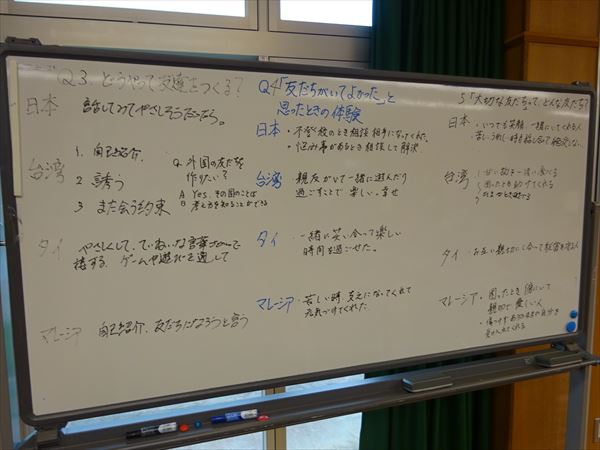 Q3. どうやって友達をつくる?
日本 話してみてやさしそうだったら。
台湾
1. 自己紹介.
2 誘う
3 また会う約束
Q. 外国の友だちを
作りたい?
A Yes. その国のことは
B 考え方を知ることができる
タイ やさしくして、ていねいな言葉
接する. ゲームや遊びを通して
マレーシア 自己紹介. 友だちになろうと言う
Q4「友だちがいてよかった」と
思ったときの体験
日本・不登校のとき相談相手になってくれた。
・悩み事があるとき相談して解決.
台湾・親友がいて一緒に遊んだり
過ごすことで楽しい・幸せ
タイ. 一緒に笑い合って楽しい
時間を過ごせた。
マレーシア・苦しい時支えになってくれて
元気づけてくれた.
5「大切な友だち」って、どんな友だち?
日本・いつでも笑顔. 一緒にいてくれる人
台湾
困ったとき助けてくれる
タイ・お互い親切にし合って
マレーシア・困ったとき側にいて
親切で優しい人
受け入れてくれる